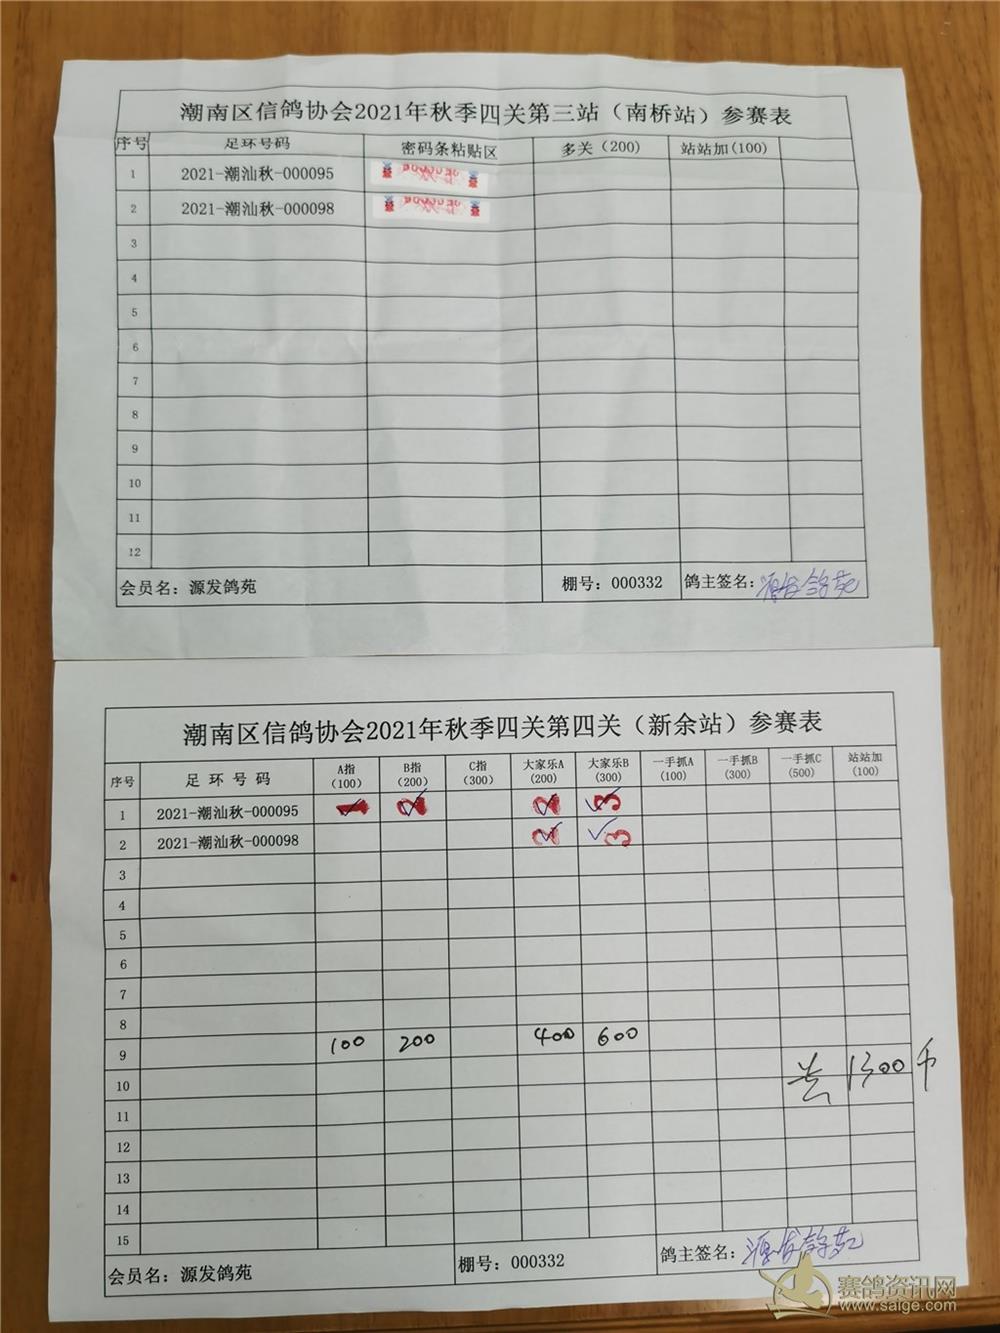 潮南区信鸽协会2021年秋季四关第三站（南桥站）参赛表
序号 足环号码 密码条粘贴区 多关（200） 站站加(100)
1 2021-潮汕秋-000095
2 2021-潮汕秋-000098
3
4
5
6
7
8
9
10
11
12
会员名：源发鸽苑 棚号：000332 鸽主签名：源发鸽苑
潮南区信鸽协会2021年秋季四关第四关（新余站）参赛表
序号 足环号码 A指(100) B指(200) C指(300) 大家乐A(200) 大家乐B(300) 一手抓A(100) 一手抓B(300) 一手抓C(500) 站站加(100)
1 2021-潮汕秋-000095 1 2 2 3
2 2021-潮汕秋-000098 2 3
3
4
5
6
7
8
9 100 200 400 600
10 共 1300币
11
12
13
14
15
会员名：源发鸽苑 棚号：000332 鸽主签名：源发鸽苑
赛鸽资讯网
www.saige.com